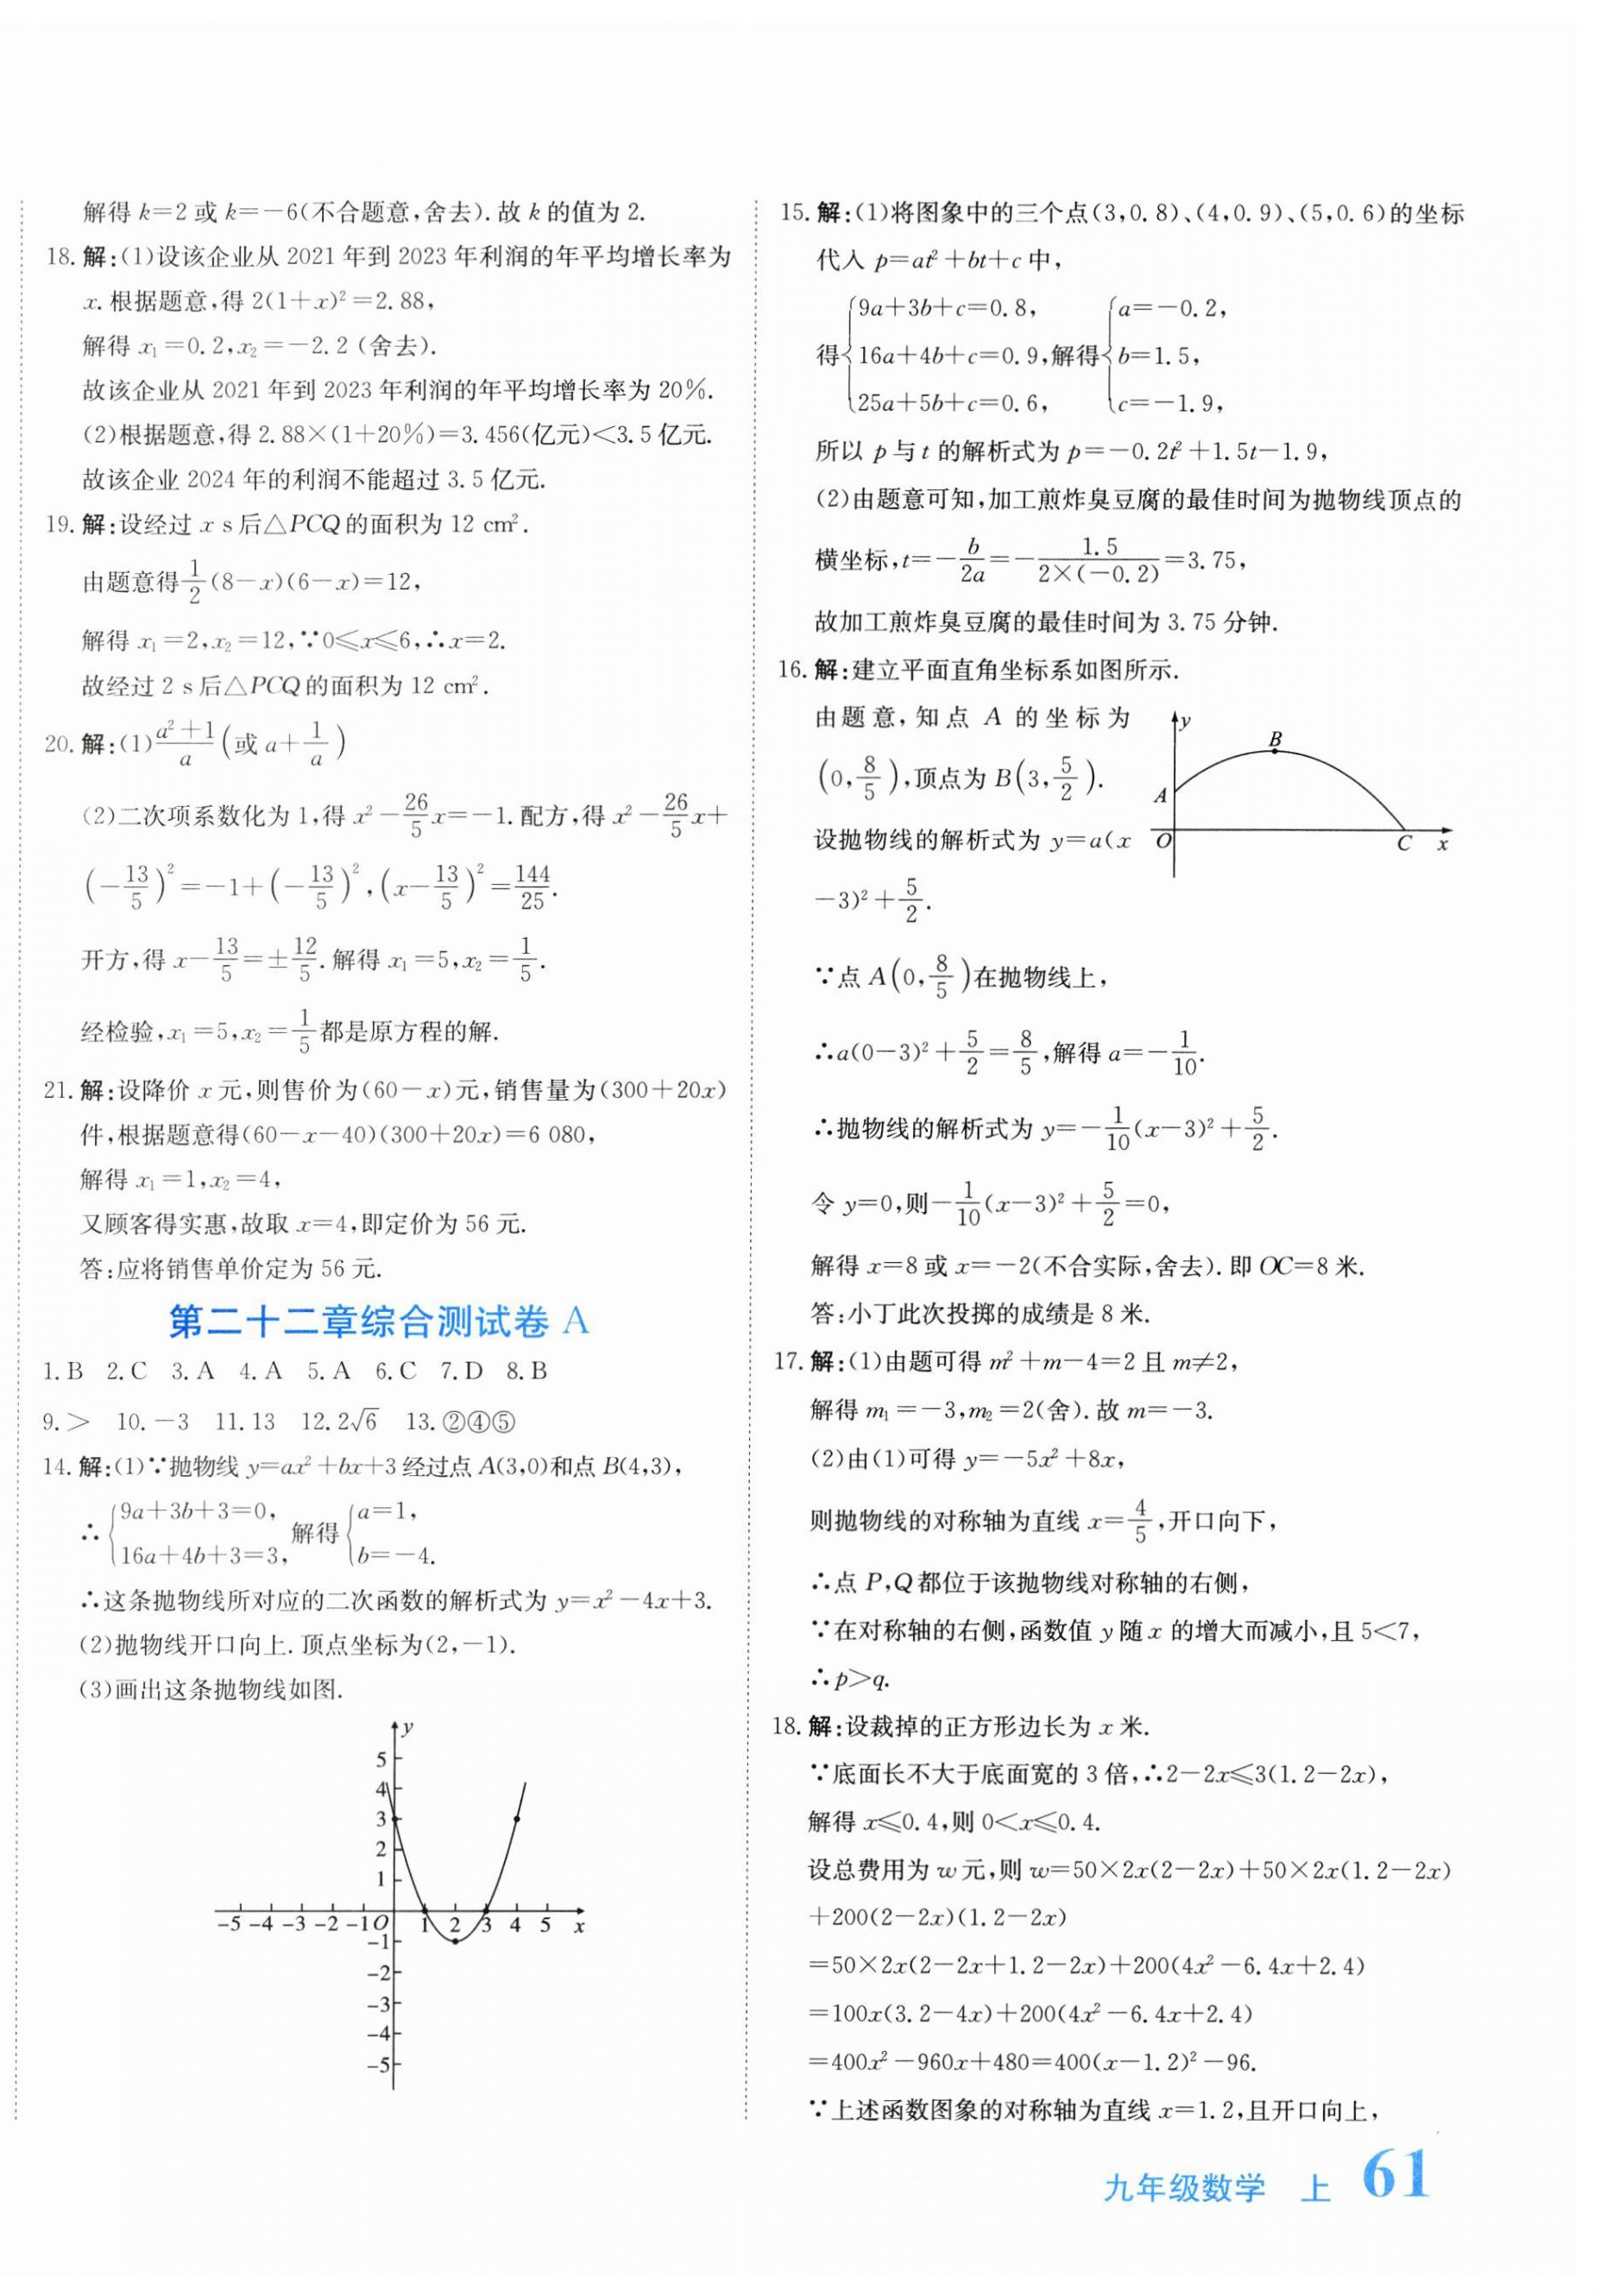 解得 k=2 或 k=-6(不合题意,舍去).故 k 的值为 2.
18.解:(1)设该企业从 2021 年到 2023 年利润的年平均增长率为
x.根据题意,得 2(1+x)²=2.88,
解得 x₁=0.2,x₂=-2.2(舍去).
故该企业从 2021 年到 2023 年利润的年平均增长率为 20%.
(2)根据题意,得 2.88×(1+20%)=3.456(亿元)<3.5 亿元.
故该企业 2024 年的利润不能超过 3.5 亿元.
19.解:设经过 x s 后△PCQ的面积为 12 cm².
由题意得 1/2(8-x)(6-x)=12,
解得 x₁=2,x₂=12,∵0≤x≤6,∴x=2.
故经过 2 s 后△PCQ的面积为 12 cm².
20.解:(1)(a²+1)/a(或 a+1/a)
(2)二次项系数化为 1,得 x²-26/5x=-1.配方,得 x²-26/5x+
(-13/5)²=-1+(-13/5)²,(x-13/5)²=144/25.
开方,得 x-13/5=±12/5.解得 x₁=5,x₂=1/5.
经检验,x₁=5,x₂=1/5都是原方程的解.
21.解:设降价 x 元,则售价为(60-x)元,销售量为(300+20x)
件,根据题意得(60-x-40)(300+20x)=6 080,
解得 x₁=1,x₂=4,
又顾客得实惠,故取 x=4,即定价为 56 元.
答:应将销售单价定为 56 元.
第二十二章综合测试卷 A
1.B 2.C 3.A 4.A 5.A 6.C 7.D 8.B
9.> 10.-3 11.13 12.2√6 13.②④⑤
14.解:(1)∵抛物线 y=ax²+bx+3 经过点 A(3,0)和点 B(4,3),
∴{9a+3b+3=0, 16a+4b+3=3, 解得{a=1, b=-4.
∴这条抛物线所对应的二次函数的解析式为 y=x²-4x+3.
(2)抛物线开口向上.顶点坐标为(2,-1).
(3)画出这条抛物线如图.
y
5
4
3
2
1
-5 -4 -3 -2 -1 O 1 2 3 4 5 x
-1
-2
-3
-4
-5
15.解:(1)将图象中的三个点(3,0.8)、(4,0.9)、(5,0.6)的坐标
代入 p=at²+bt+c 中,
得{9a+3b+c=0.8, 16a+4b+c=0.9, 25a+5b+c=0.6, 解得{a=-0.2, b=1.5, c=-1.9,
所以 p 与 t 的解析式为 p=-0.2t²+1.5t-1.9,
(2)由题意可知,加工煎炸臭豆腐的最佳时间为抛物线顶点的
横坐标,t=-b/2a=-1.5/(2×(-0.2))=3.75,
故加工煎炸臭豆腐的最佳时间为 3.75 分钟.
16.解:建立平面直角坐标系如图所示.
由题意,知点 A 的坐标为
(0,8/5),顶点为 B(3,5/2).
设抛物线的解析式为 y=a(x
-3)²+5/2.
y
B
A
O
C
x
∵点 A(0,8/5)在抛物线上,
∴a(0-3)²+5/2=8/5,解得 a=-1/10.
∴抛物线的解析式为 y=-1/10(x-3)²+5/2.
令 y=0,则-1/10(x-3)²+5/2=0,
解得 x=8 或 x=-2(不合实际,舍去).即 OC=8 米.
答:小丁此次投掷的成绩是 8 米.
17.解:(1)由题可得 m²+m-4=2 且 m≠2,
解得 m₁=-3,m₂=2(舍).故 m=-3.
(2)由(1)可得 y=-5x²+8x,
则抛物线的对称轴为直线 x=4/5,开口向下,
∴点 P,Q 都位于该抛物线对称轴的右侧,
∵在对称轴的右侧,函数值 y 随 x 的增大而减小,且 5<7,
∴p>q.
18.解:设裁掉的正方形边长为 x 米.
∵底面长不大于底面宽的 3 倍,∴2-2x≤3(1.2-2x),
解得 x≤0.4,则 0<x≤0.4.
设总费用为 w 元,则 w=50×2x(2-2x)+50×2x(1.2-2x)
+200(2-2x)(1.2-2x)
=50×2x(2-2x+1.2-2x)+200(4x²-6.4x+2.4)
=100x(3.2-4x)+200(4x²-6.4x+2.4)
=400x²-960x+480=400(x-1.2)²-96.
∵上述函数图象的对称轴为直线 x=1.2,且开口向上,
九年级数学 上 61